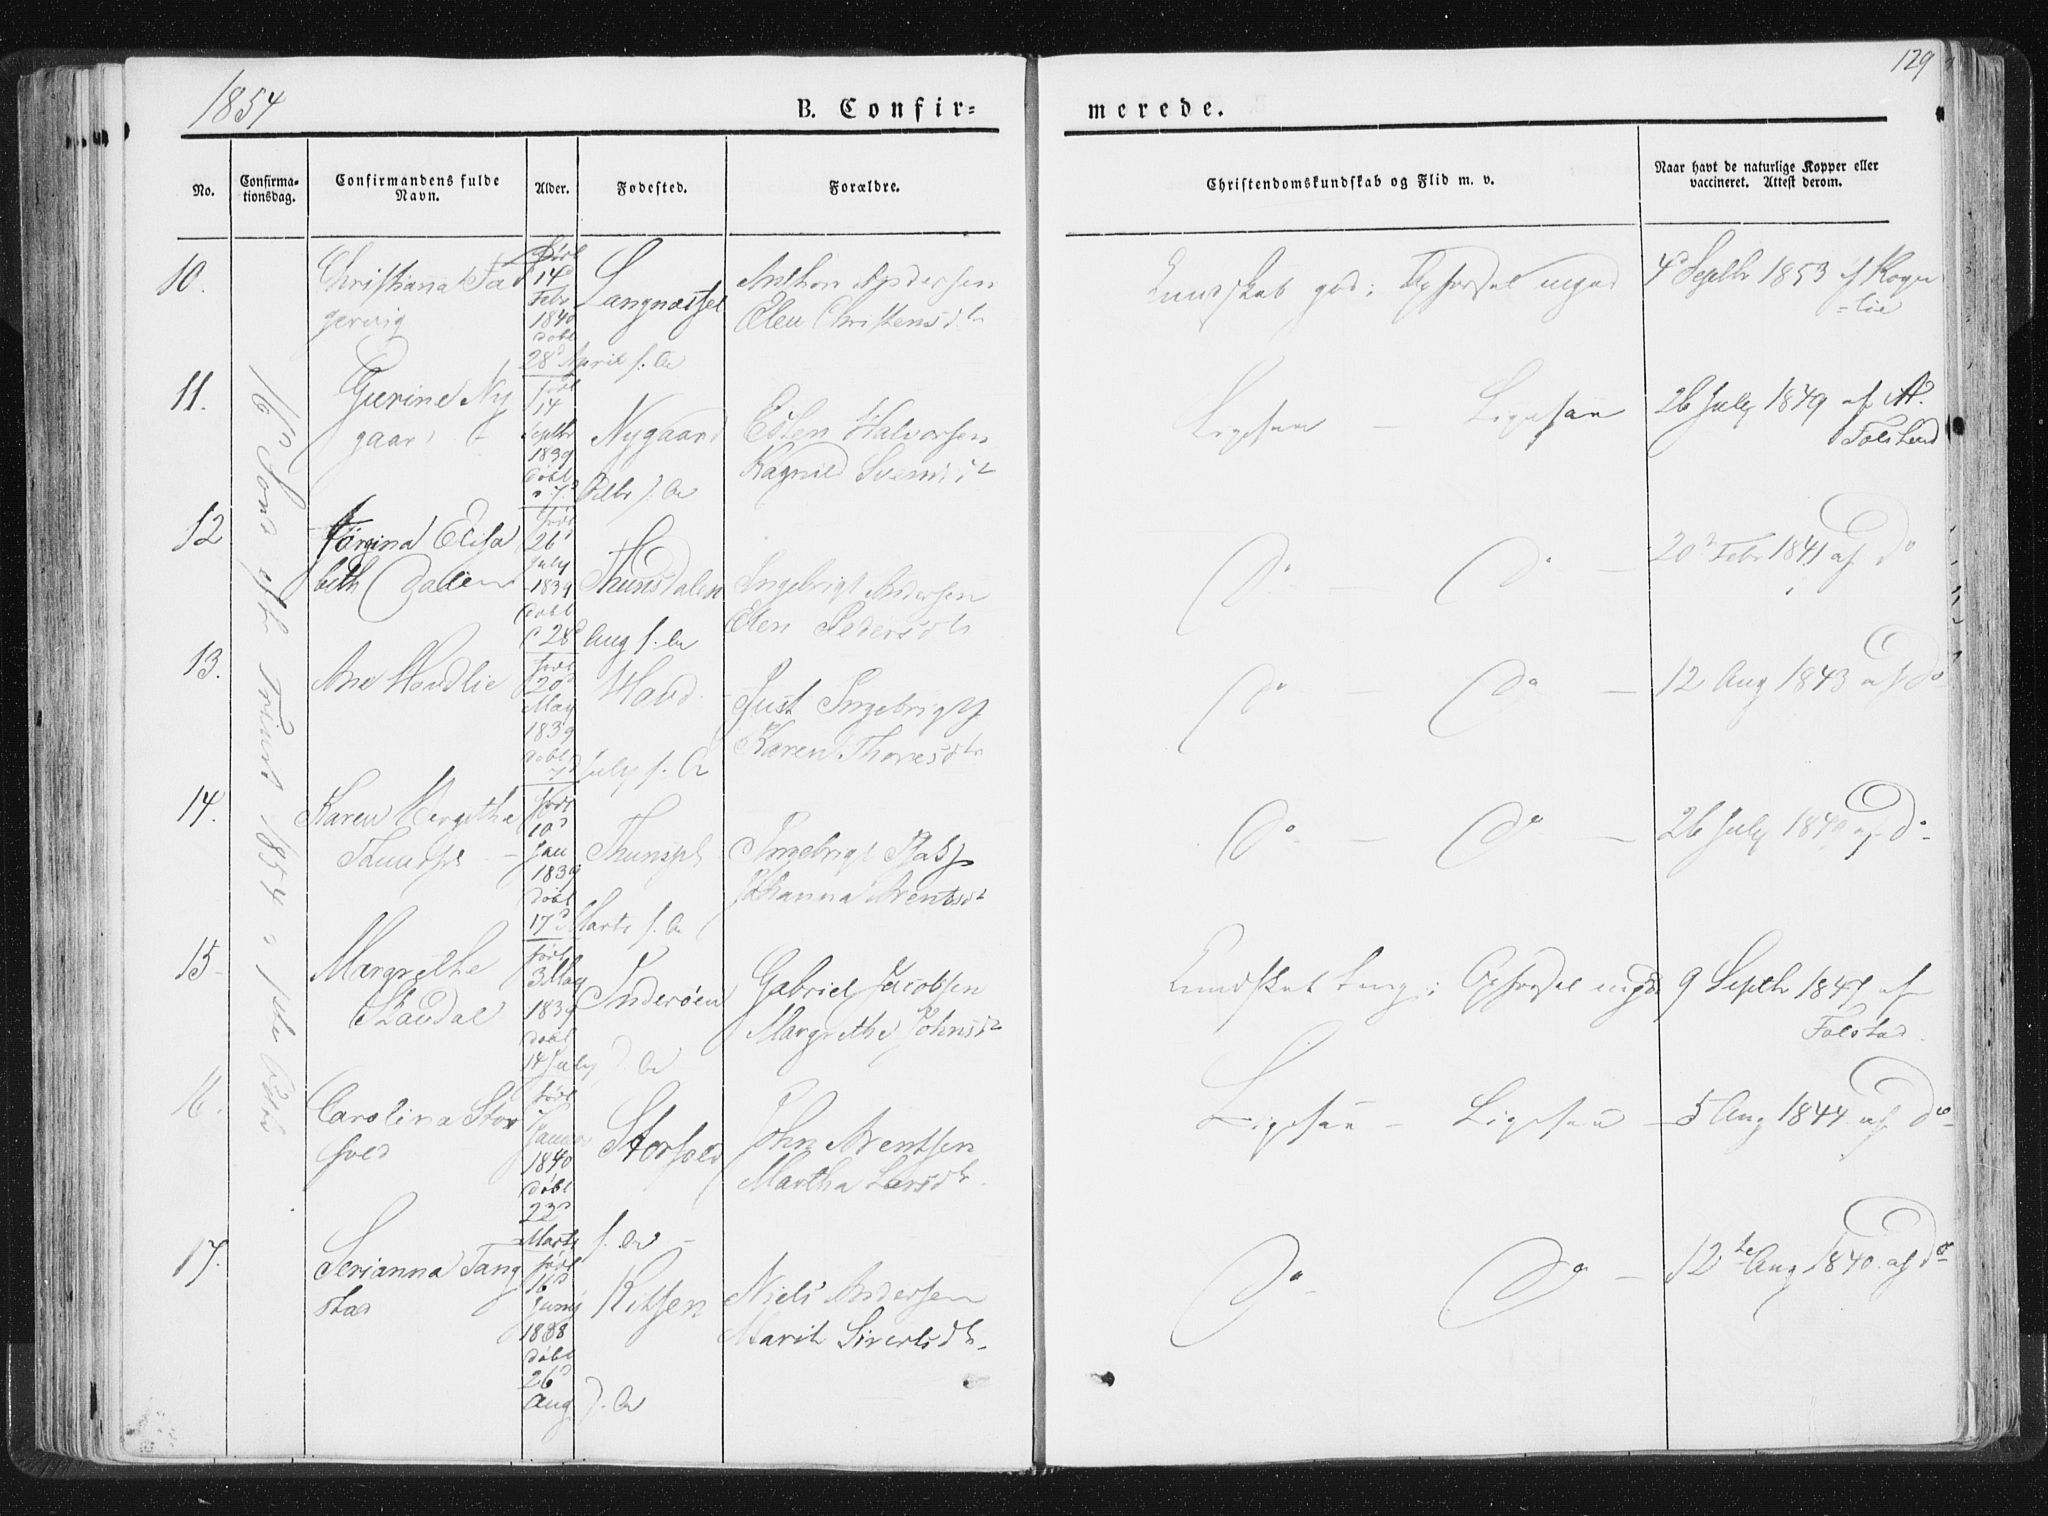 1854
129
B. Confir=
merede.
No.
Confirma-
tionsdag.
Confirmandens fulde
Navn.
Alder.
Fødested.
Forældre.
Christendomskundskab og Flid m. v.
Naar havt de naturlige Kopper eller
vaccineret. Attest derom.
16d Sønd efter Trinit 1854
10.
Christianna
gervig
født
14d
Febr
1840
døbt
28d April s. A
Langnæsset
Anthon Andersen
Elen Christensdtr
Kundskab god; Opførsel
4d Septbr 1853 af
11.
Gurine Ny
gaard
født
14
Septbr
1839
døbt
Octbr s. A
Nygaard
Esten Halvorsen
Ragnild
Ligesaa — Ligesaa
26 July 1849 af A.
Folstad
12
Jørgina Elisa
beth Dallen
født
26d
July
1839
døbt
28d Aug s. A
Thunsdalen
Ingebrigt Andersen
Elen Pedersdtr
Do — Do —
20d Febr 1841 af Do
13.
Ane Havdlie
født
20d
May
1839
døbt
July s. A
Havd
Just Ingebrigts
Karen Thoresdtr
Do — Do —
12 Aug 1843 af Do
14.
Karen Bergitha
født
10d
Jan
1839
døbt
17d Marts s. A
Ingebrigt
Johanna Arentsdr
Do — Do —
26 July 1849 af Do
15
Margrethe
født
3 May
1839
døbt
14 July s. A
Inderøen
Gabriel Jacobsen
Margrethe Johnsdr
Kundskab; Opførsel
9 Septbr 1847 af
Folstad.
16.
Carolina Stor
fold
født
7
Januar
1840
døbt
22d
Marts s. A
Storfold
John Arentsen
Martha Larsdtr.
Ligesaa — Ligesaa —
5 Aug 1844 af Do
17.
Serianna Tang
stad
født
16d
Juny
1838
døbt
26d
Aug s. A
Niels Andersen
Marit Sivertsdtr.
Do — Do —
12te Aug 1840 af Do